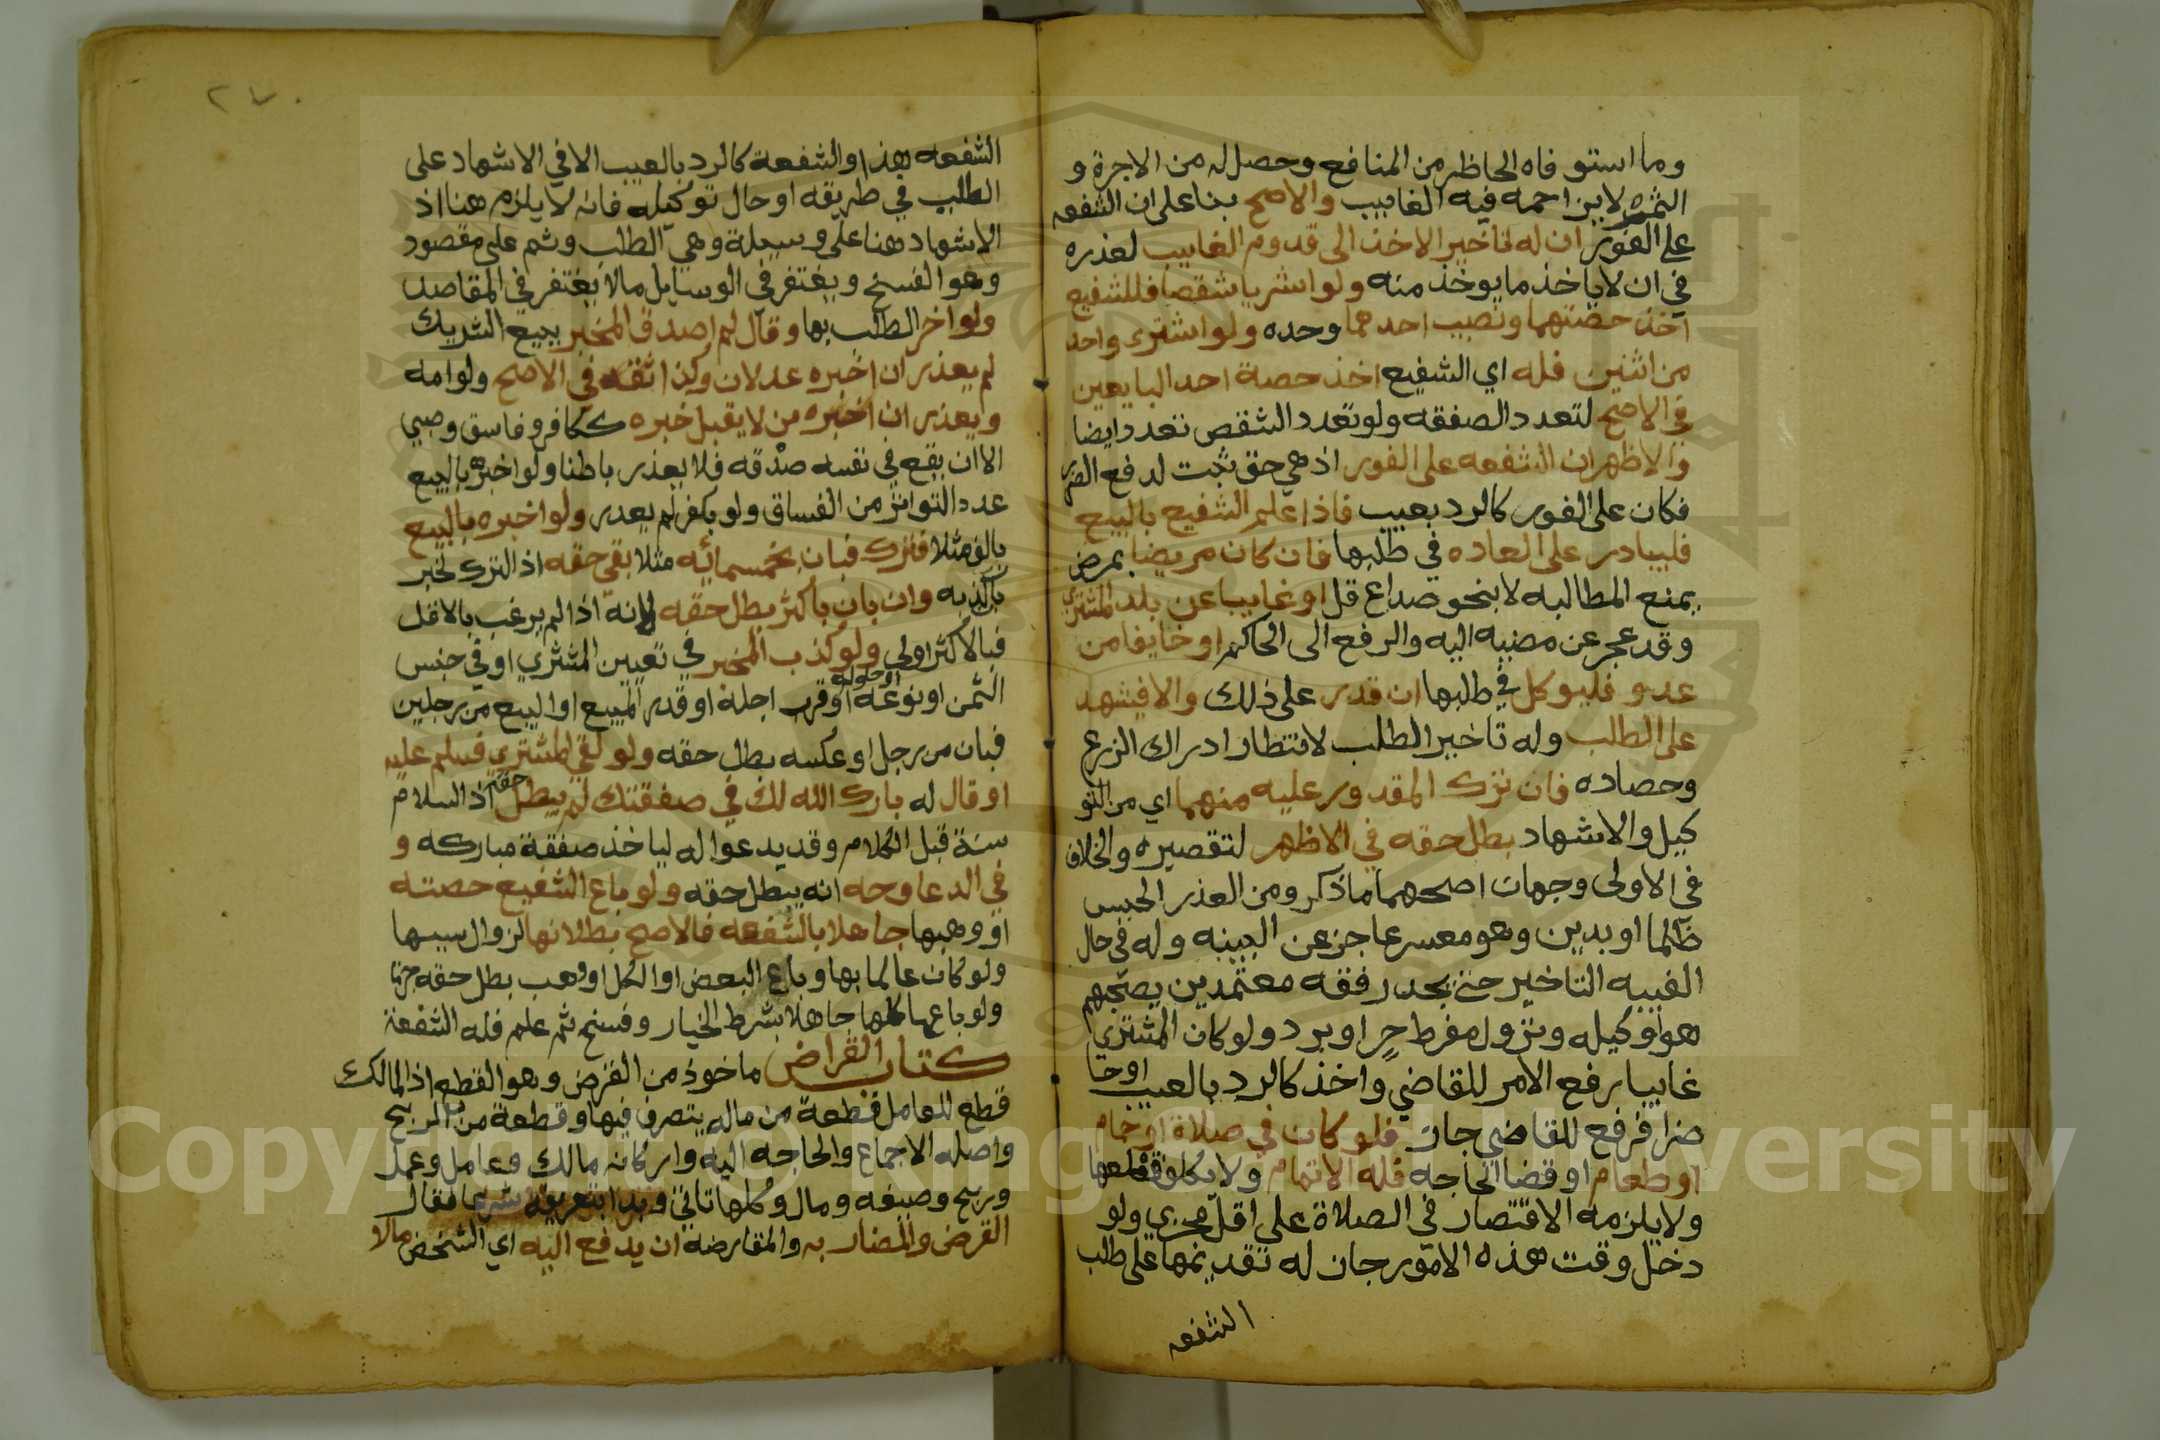 وما استوفاه الحاظر من المنافع وحصل له من الاجرة و
الثمره لا يزاحمه فيه الغايب والاصح بنا على ان الشفعه
على الفور ان له تاخير الاخذ الى قدوم الغايب لعذره
في ان لا ياخذ ما يوخذ منه ولو اشتريا شقصا فللشفيع
اخذ حصتهما ونصيب احدهما وحده ولو اشترى واحد
من اثنين فله اي الشفيع اخذ حصة احد البايعين
في الاصح لتعدد الصفقه ولو تعدد الشقص تعدد ايضا
والاظهر ان الشفعه على الفور اذ هي حق ثبت لدفع الضرر
فكان على الفور كالرد بعيب فاذا علم الشفيع بالبيع
فليبادر على العاده في طلبها فان كان مريضا بمرض
يمنع المطالبه لا بنحو صداع قل او غايبا عن بلد المشتري
وقد عجز عن مضيه اليه والرفع الى الحاكم او خايفا من
عدو فليوكل في طلبها ان قدر على ذلك والا فيشهد
على الطلب وله تاخير الطلب لانتظار ادراك الزرع
وحصاده فان ترك المقدور عليه منهما اي من التو
كيل والاشهاد بطل حقه في الاظهر لتقصيره والخلاف
في الاولى وجهان اصحهما ما ذكر ومن العذر الحبس
ظلما او بدين وهو معسر عاجز عن البينه وله في حال
الغيبه التاخير حتى يجد رفقه معتمدين يصحبهم
هو او وكيله ونزول مفرط حر او برد ولو كان المشتري
غايبا رفع الامر للقاضي واخذ كالرد بالعيب او حا
ضرا فرفع للقاضي جاز فلو كان في صلاة او حمام
او طعام او قضا الحاجه فله الاتمام ولا يكلف قطعها
ولا يلزمه الاقتصار في الصلاة على اقل مجزي ولو
دخل وقت هذه الامور جان له تقديمها على طلب
الشفعه
٢٧٠
الشفعه هذا والشفعة كالرد بالعيب الا في الاشهاد على
الطلب في طريقه او حال توكيله فانه لا يلزم هنا اذ
الاشهاد هنا على وسيلة وهي الطلب وثم على مقصود
وهو الفسخ ويغتفر في الوسايل مالا يغتفر في المقاصد
ولو اخر الطلب بها وقال لم اصدق المخبر ببيع الشريك
لم يعذر ان اخبره عدلان وكذا ثقه في الاصح ولو امه
ويعذر ان اخبره من لا يقبل خبره ككافر وفاسق وصبي
الا ان يقع في نفسه صدقه فلا يعذر باطنا ولو اخبره بالبيع
عدد التواتر من الفساق ولو بكفر لم يعذر ولو اخبره بالبيع
بالف مثلا فترك فبان بخمسمائه مثلا بقي حقه اذ الترك لخبر
بان كذبه وان بان باكثر بطل حقه لانه اذا لم يرغب بالاقل
فبالاكثر اولى ولو كذب المخبر في تعيين المشتري او في جنس
الثمن او نوعه او حلوله او قرب اجله او قدر المبيع او البيع من رجلين
فبان من رجل او عكسه بطل حقه ولو لقي المشتري فسلم عليه
او قال له بارك الله لك في صفقتك لم يبطل حقه اذ السلام
سنة قبل الكلام وقد يدعو اله لياخذ صفقة مباركه و
في الدعا وجه انه يبطل حقه ولو باع الشفيع حصته
او وهبها جاهلا بالشفعه فالاصح بطلانها لزوال سببها
ولو كان عالما بها وباع البعض او الكل او وهب بطل حقه جزما
ولو باعها كلها جاهلا بشرط الخيار وفسخ ثم علم فله الشفعة
كتاب القراض ماخوذ من القرض وهو القطع اذ المالك
قطع للعامل قطعة من ماله يتصرف فيها وقطعة من الربح
واصله الاجماع والحاجه اليه واركانه مالك وعامل وعمل
وربح وصيغه ومال وكلها تاتي وبدا بتعريفه شرعا فقال
القرض والمضاربه والمقارضة ان يدفع اليه اي الشخص مالا
Copyright © King Saud University